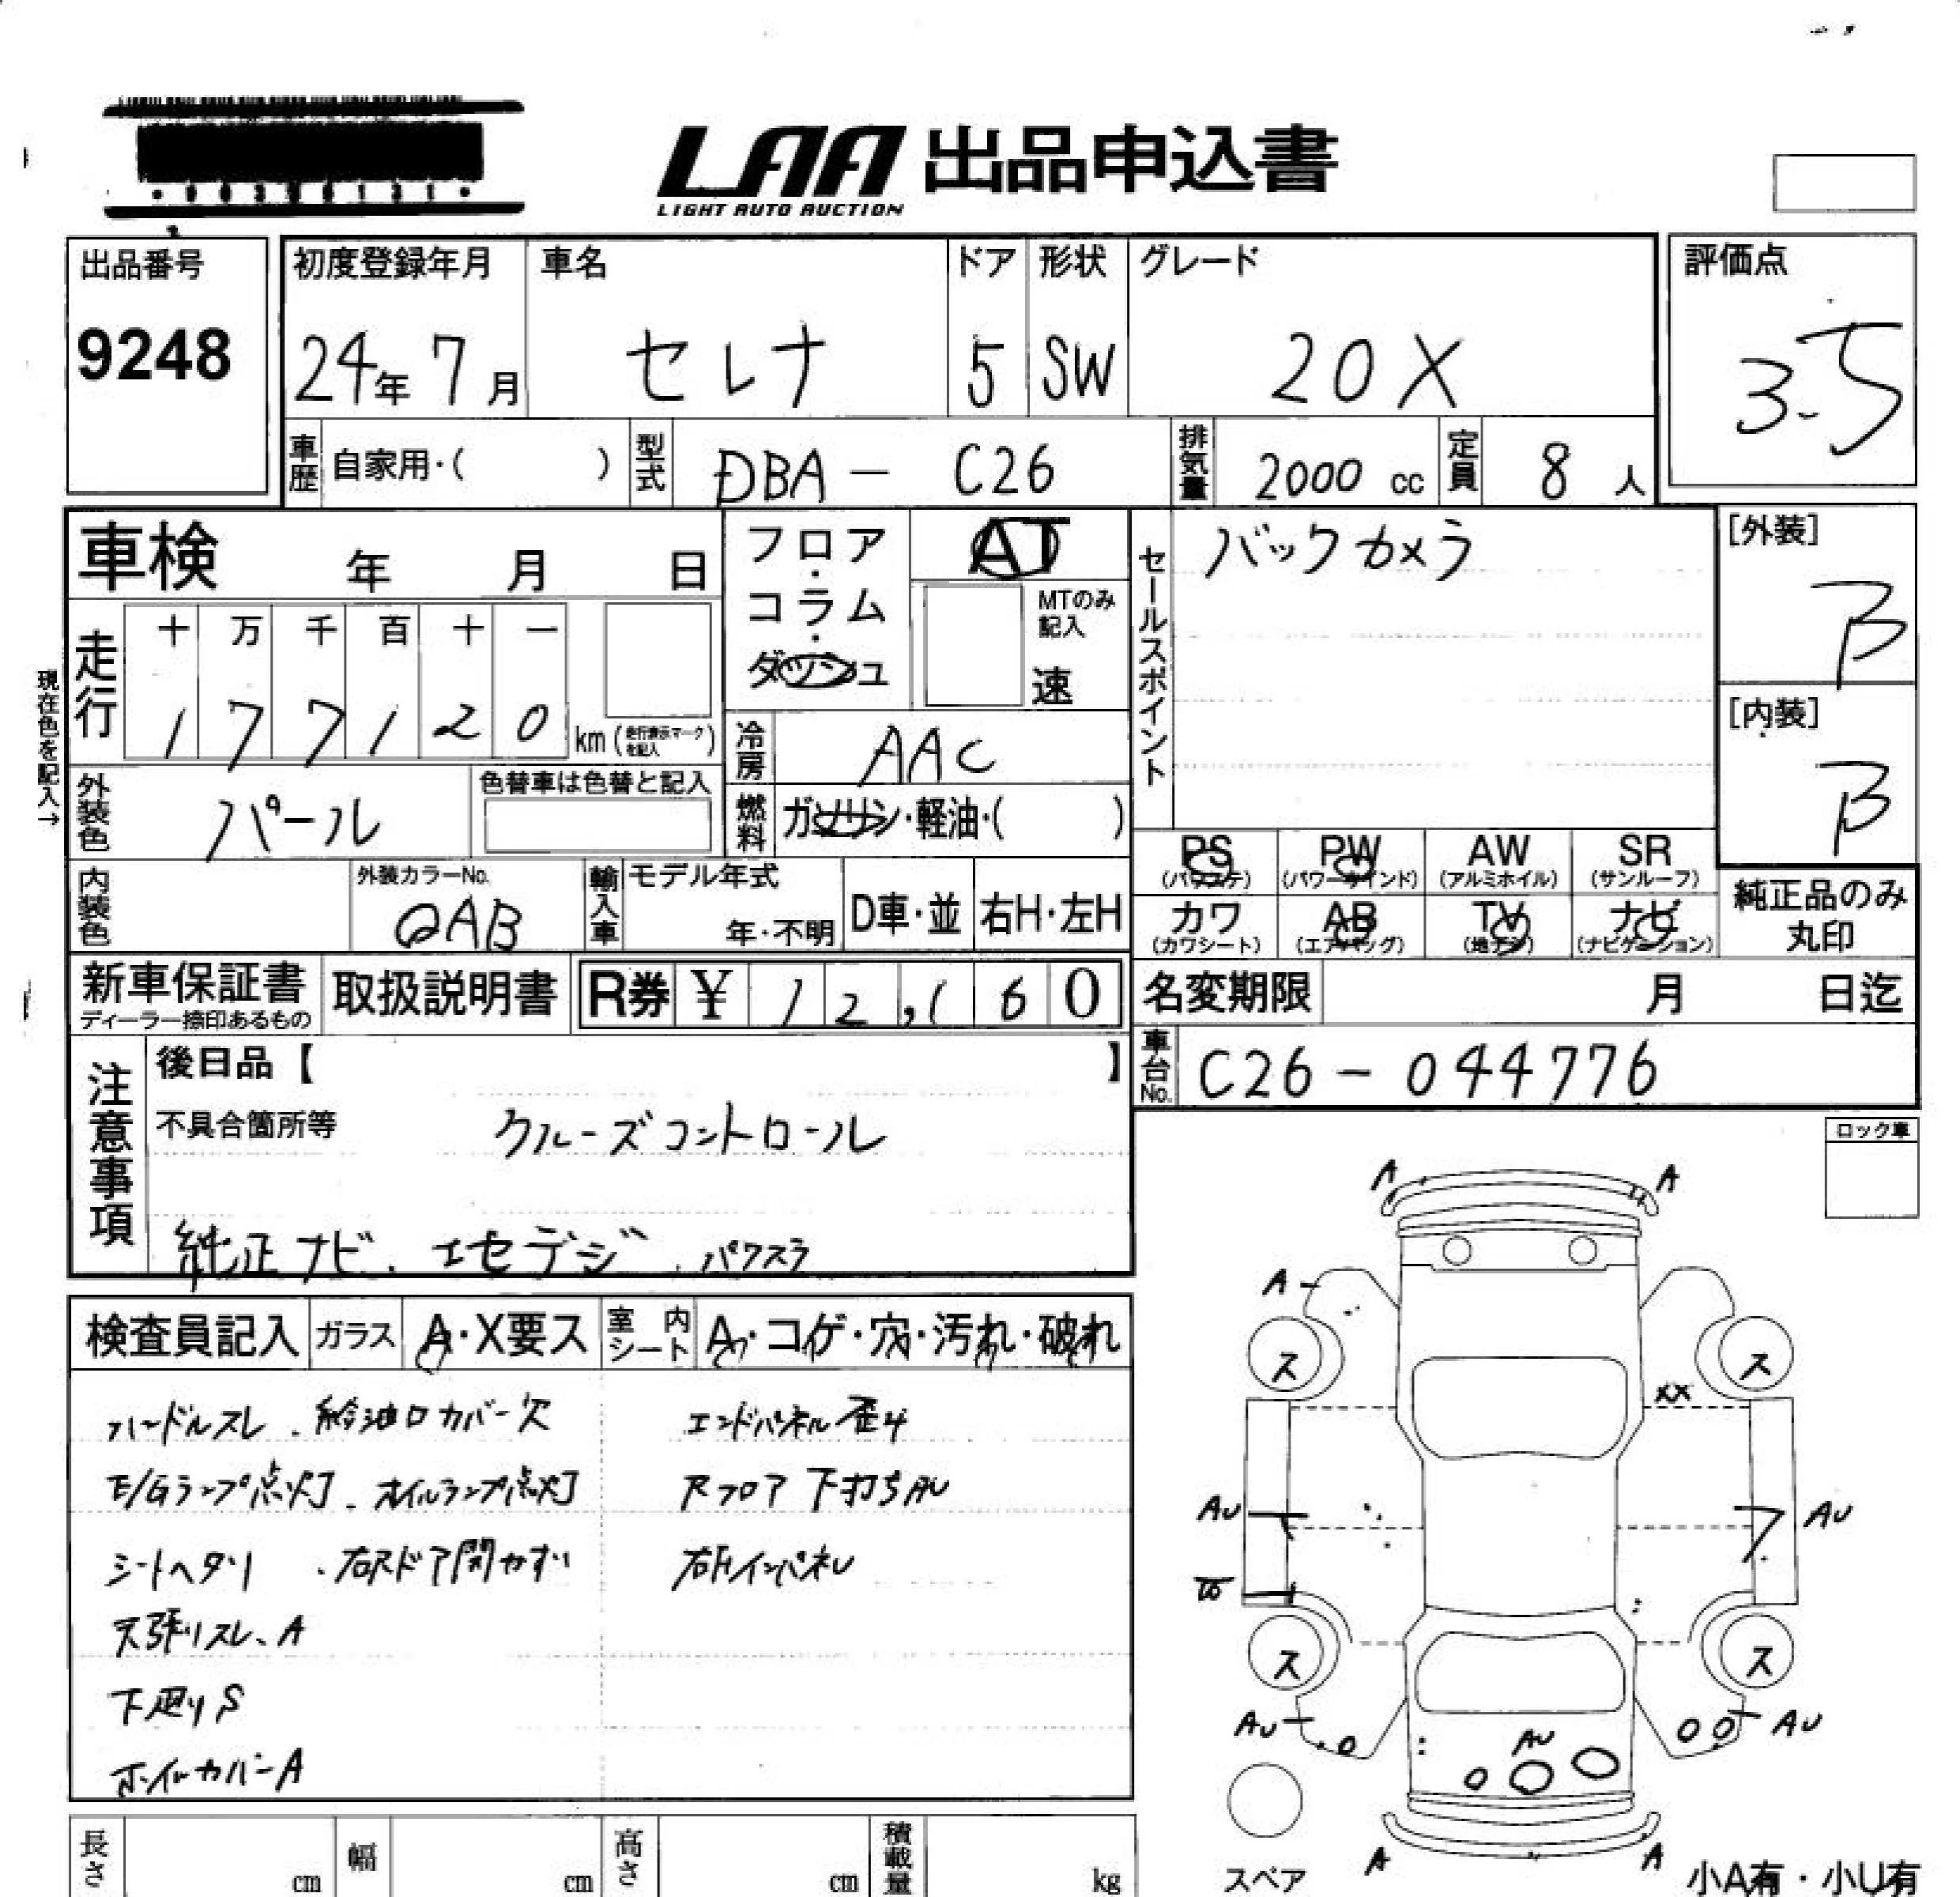 LAA 出品申込書
LIGHT AUTO AUCTION
出品番号
9248
初度登録年月
24年 7月
車名
セレナ
ドア
5
形状
SW
グレード
20X
評価点
3.5
車歴 自家用・( )
型式 DBA - C26
排気量 2000 cc
定員 8 人
車検 年 月 日
フロア・コラム・ダッシュ
AT
MTのみ記入
速
セールスポイント
バックカメラ
[外装]
B
[内装]
B
現在色を記入→
走行
十 万 千 百 十 一
1 7 7 1 2 0 km (走行表示マークを記入)
冷房 AAC
外装色 パール
色替車は色替と記入
燃料 ガソリン・軽油・( )
内装色
外装カラーNo.
QAB
輸入車
モデル年式
年・不明
D車・並
右H・左H
PS (パワステ)
PW (パワーウインド)
AW (アルミホイル)
SR (サンルーフ)
カワ (カワシート)
AB (エアバッグ)
TV (地デジ)
ナビ (ナビゲーション)
純正品のみ丸印
新車保証書
ディーラー捺印あるもの
取扱説明書
R券 ¥ 12,160
名変期限 月 日迄
車台No. C26-044776
注意事項
後日品【 】
不具合箇所等
クルーズコントロール
純正ナビ.
パワスラ
ロック車
検査員記入
ガラス A・X要ス
室内シート A・コゲ・穴・汚れ・破れ
ハンドルスレ.給油口カバー欠
エンドパネル歪み
E/Gランプ点灯.オイルランプ点灯
Rフロア下打ちAU
シートヘタリ
.右Rドア開かず
天張リスレ、A
下廻りS
ホイルカバーA
A A
A
ス ス
XX
AU AU
ス ス
AU AU
AU
A A
スペア
小A有・小U有
長さ cm
幅 cm
高さ cm
積載量 kg